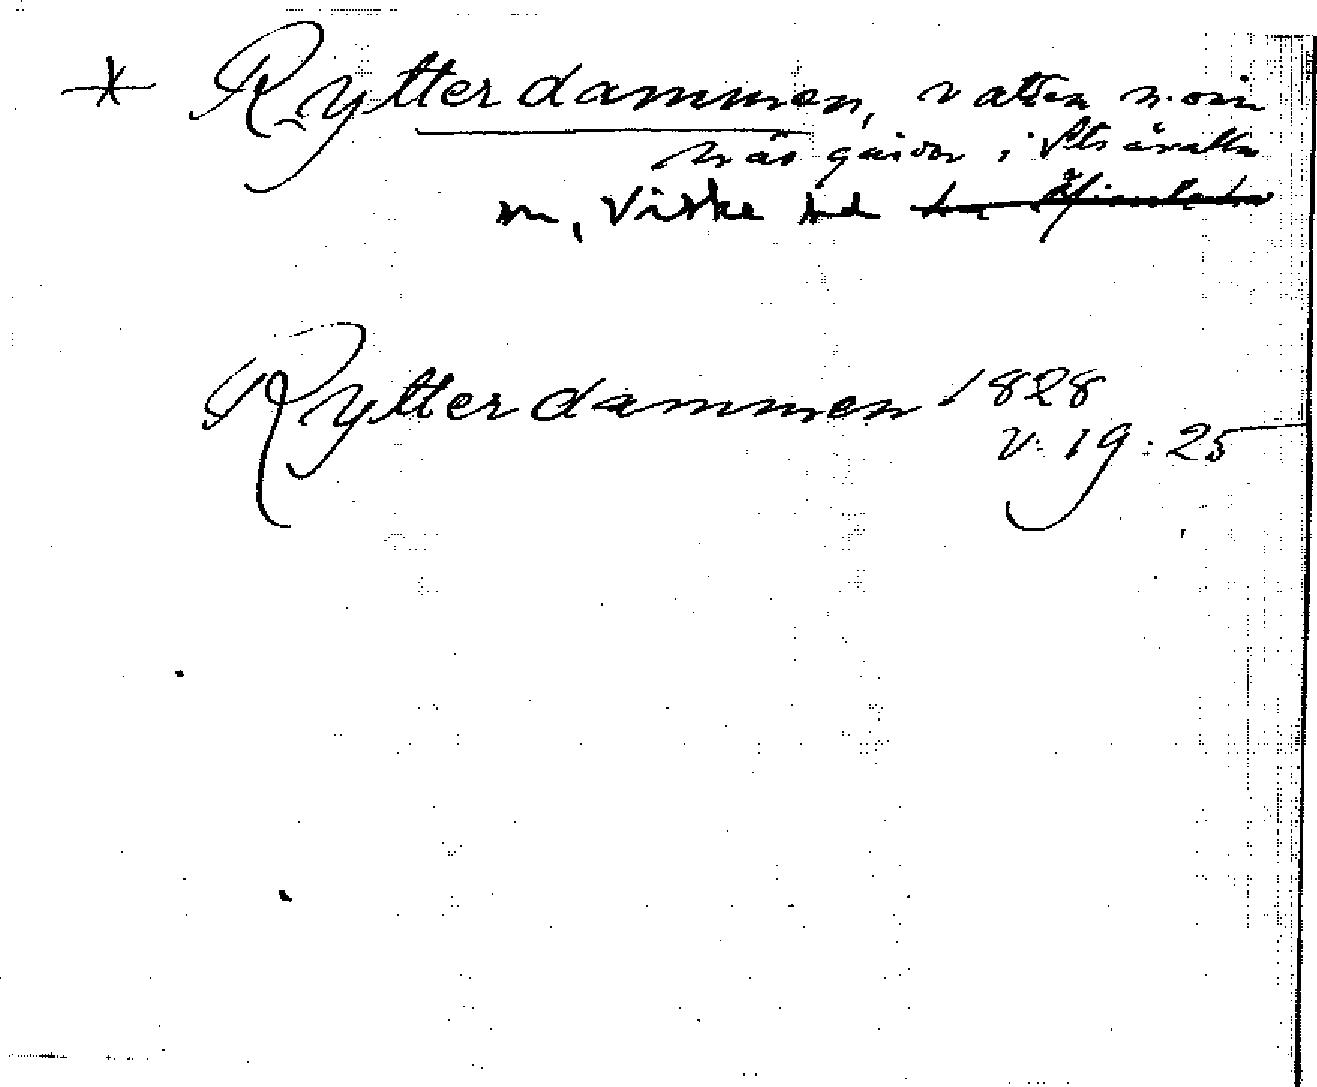 Rytterdammen, vatten n. om
Näs gården i Sträralla
m, Viske hd
Rytterdammen 1828
v: 19: 25